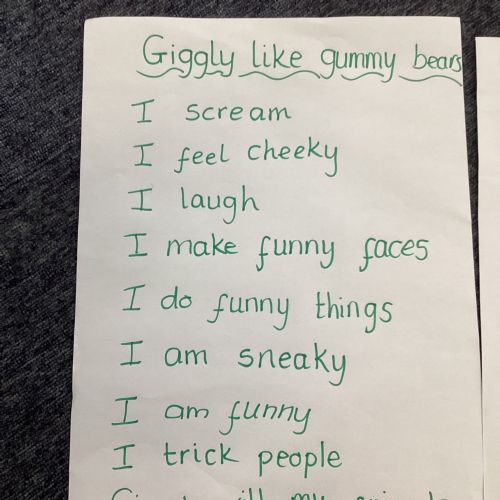 Giggly like gummy bears
I scream
I feel cheeky
I laugh
I make funny faces
I do funny things
I am sneaky
I am funny
I trick people